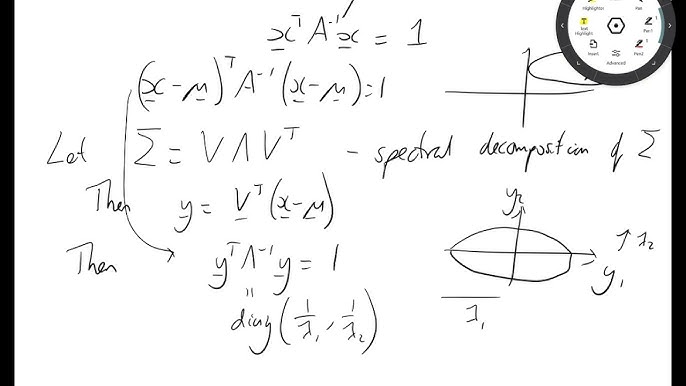 x^T A^{-1} x = 1
(x - μ)^T A^{-1} (x - μ) = 1
Let Σ = V Λ V^T - spectral decomposition of Σ
Then y = V^T (x - μ)
Then y^T Λ^{-1} y = 1
"
diag(1/λ₁, 1/λ₂)
y₂
y₁
↑ λ₂
λ₁
Highlighter
Pen
Text Highlight
Pen1
Insert
Pen2
Advanced